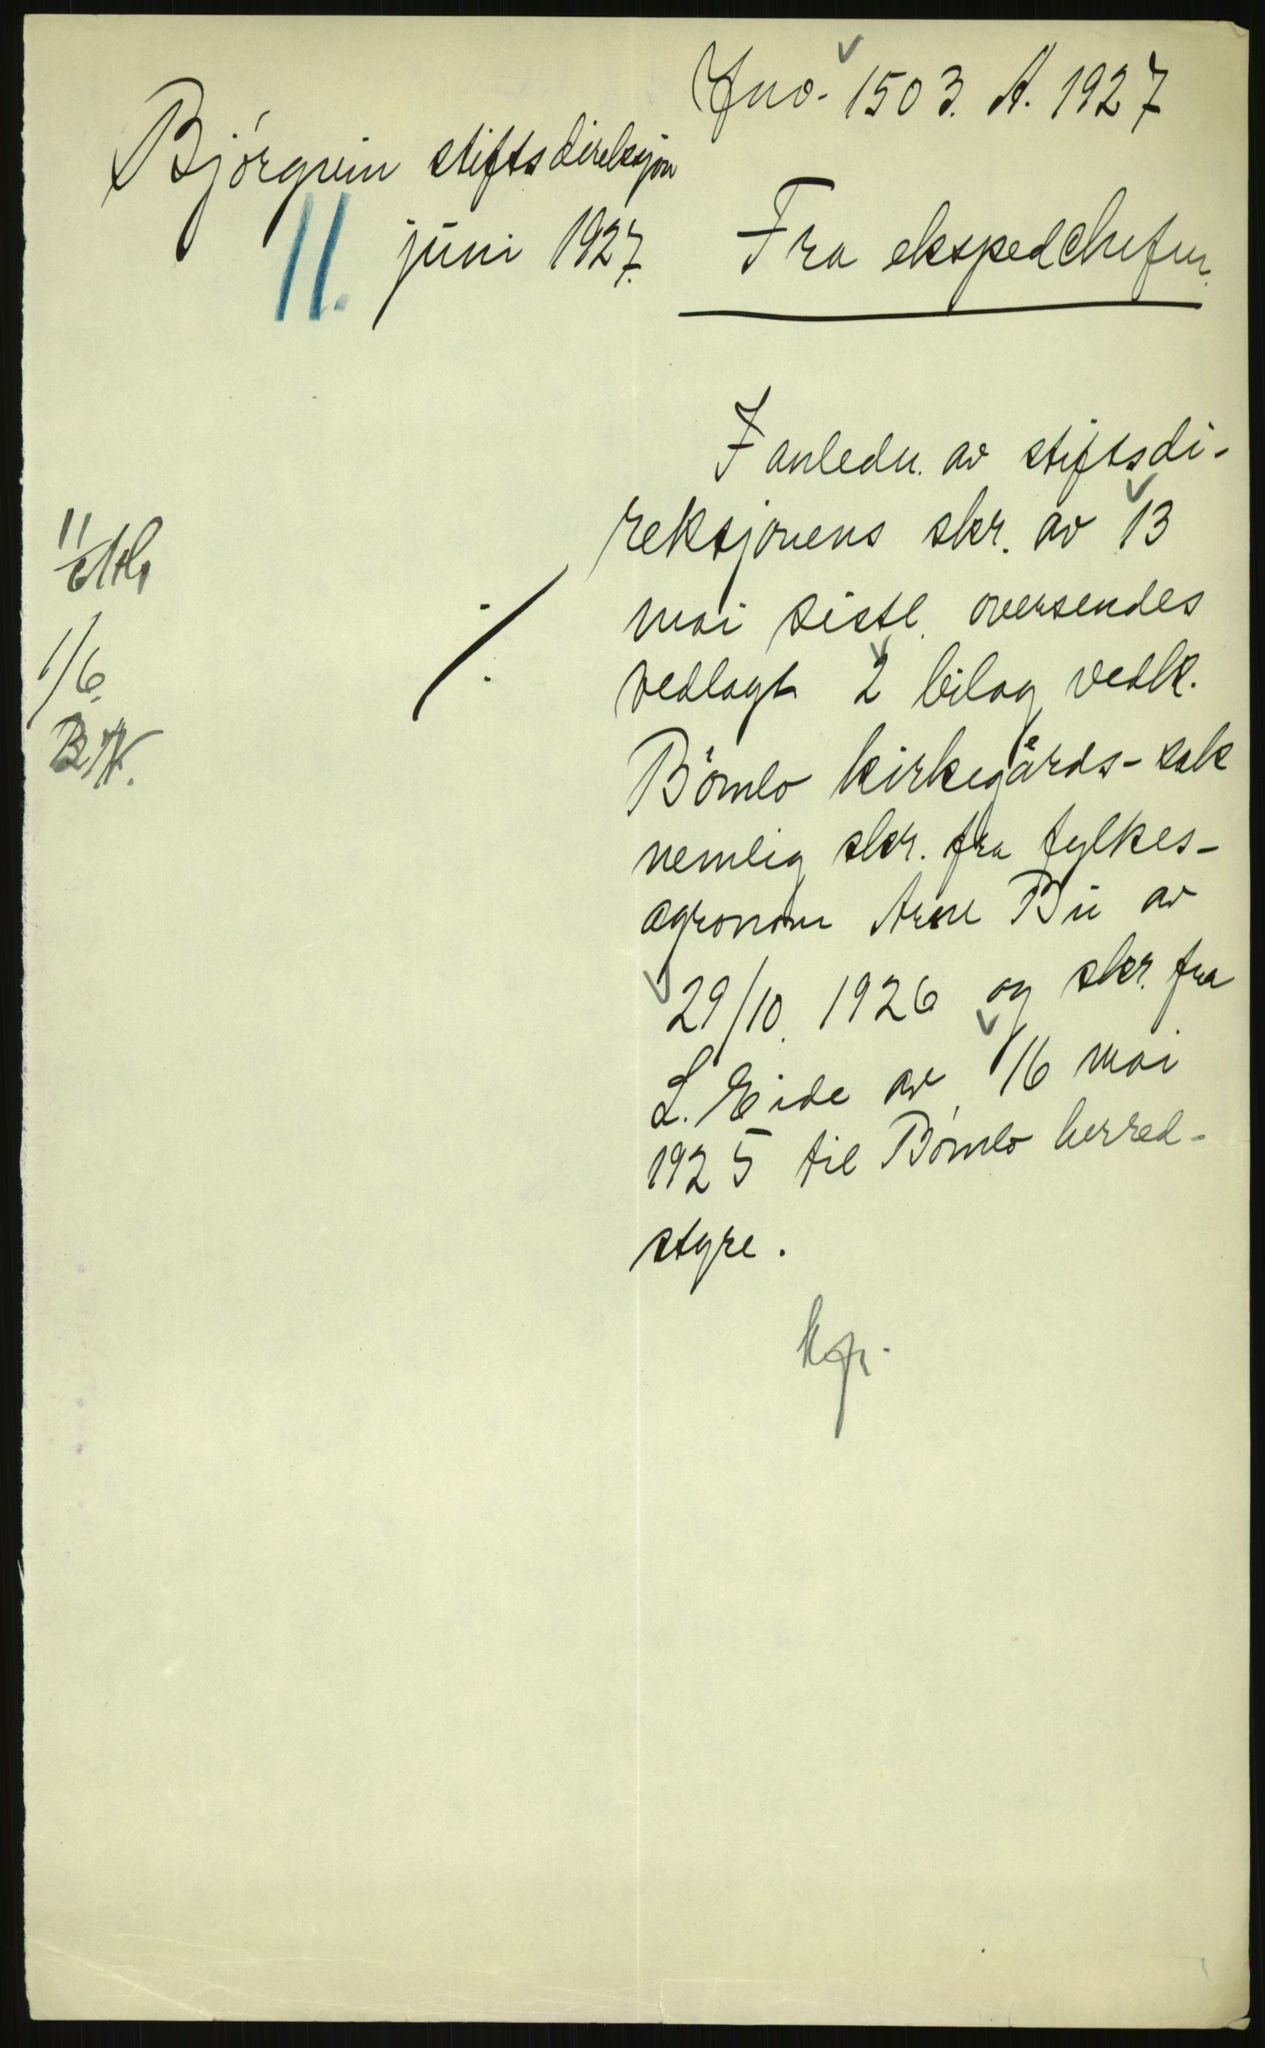 Jno. 1503. A. 1927
Bjórgvin stiftsdireksjon
11. juni 1927.
Fra ekspedchefen.
I anledn. av stiftsdi-
reksjonens skr. av 13
mai sistl. oversendes
vedlagt 2 bilag vedk.
Bömlo kirkegårds-sak
nemlig skr. fra fylkes-
agronom Arne Bü av
29/10. 1926 og skr. fra
L. Eide av 16 mai
1925 til Bómlo herred-
styre.
1/6.